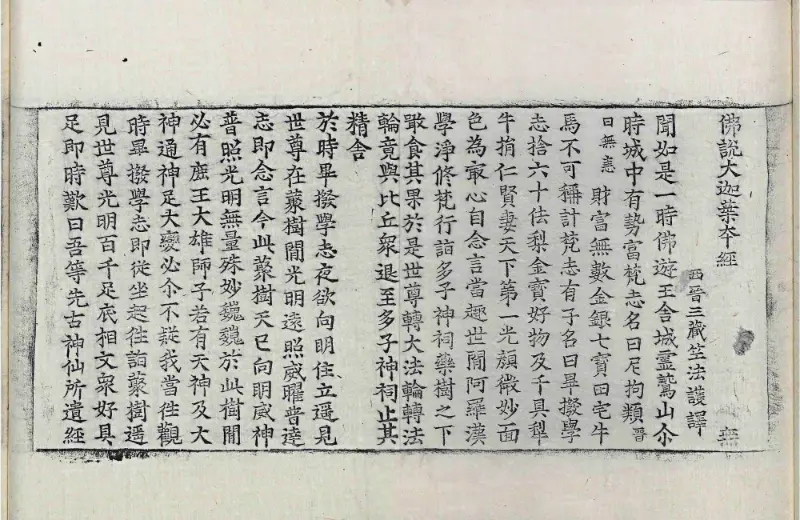 佛說大迦葉本經　無
西晉三藏竺法護譯
聞如是一時佛遊王舍城靈鷲山尒
時城中有勢富梵志名曰尼拘類晉
曰無恚財富無數金銀七寶田宅牛
馬不可稱計梵志有子名曰畢撥學
志捨六十佉梨金寶好物及千具犁
牛捐仁賢妻天下第一光顏微妙面
色為㝡心自念言當趣世閒阿羅漢
學淨修梵行詣多子神祠藥樹之下
取食其果於是世尊轉大法輪轉法
輪竟與比丘眾退至多子神祠止其
精舍
於時畢撥學志夜欲向明住立遥見
世尊在藂樹閒光明遠照威曜普達
志即念言今此藂樹天已向明威神
普照光明無量殊妙巍巍於此樹閒
必有庶王大雄師子若有天神及大
神通神足大變必尒不疑我當往觀
時畢撥學志即從坐起往詣藂樹遥
見世尊光明百千足底相文眾好具
足即時歎曰吾等先古神仙所遺經